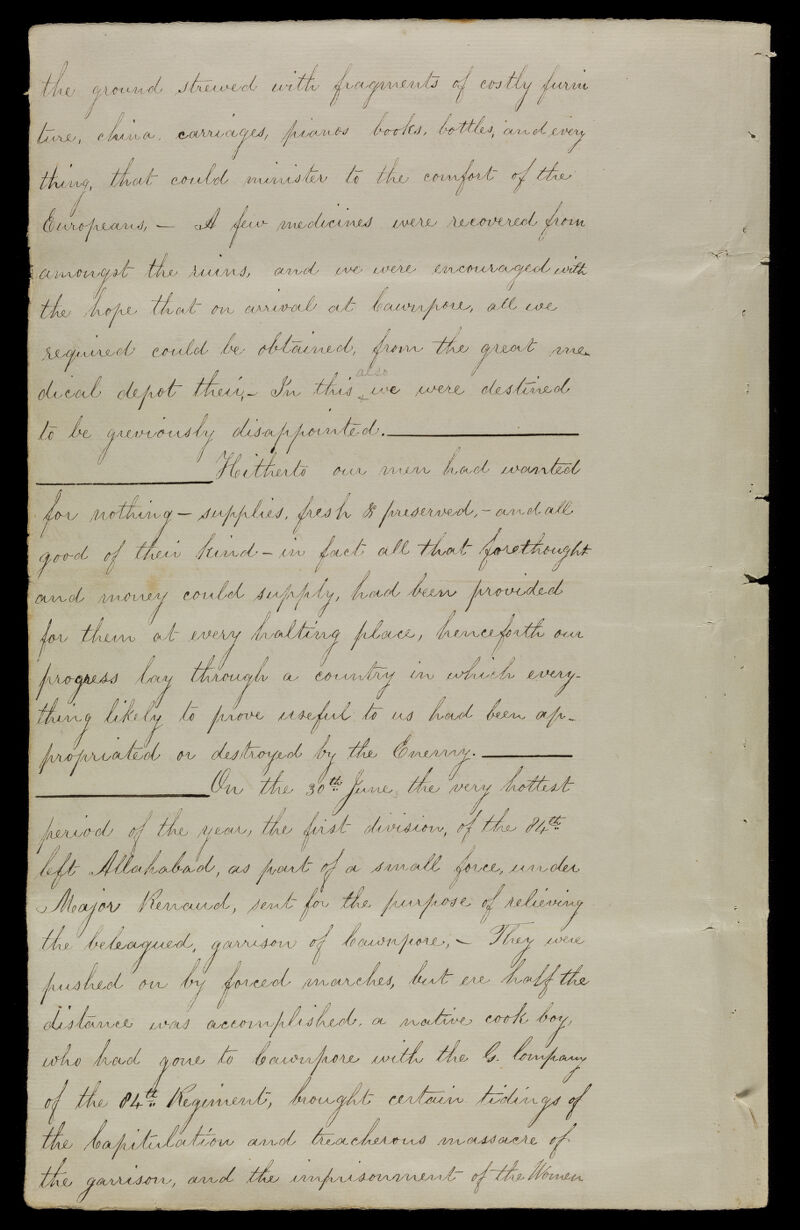 the ground strewed with fragments of costly furni
ture, china. carriages, pianos books, bottles, and every
thing, that could minister to the comfort of the
Europeans, — A few medicines were recovered from
amongst the ruins, and we were encouraged with
the hope that on arrival at Cawnpore, all we
required could be obtained, from the great me-
dical depot their, — In this also we were destined
to be greviously disappointed. —
Hitherto our men had wanted
for nothing — supplies, fresh & preserved, — and all
good of their kind — in fact all that forethought
and money could supply, had been provided
for them at every halting place, henceforth our
progress lay through a country in which every-
thing likely to prove useful to us had been ap-
propriated or destroyed by the Enemy. —
On the 30th June, the very hottest
period of the year, the first division, of the 84th
left Allahabad, as part of a small force, under
Major Renaud, sent for the purpose of relieving
the beleagued, garrison of Cawnpore, — They were
pushed on by forced marches, but ere half the
distance was accomplished, a native cook boy,
who had gone to Cawnpore with the G. Company
of the 84th Regiment, brought certain tidings of
the Capitulation and treacherous massacre of
the garrison, and the imprisonment of the Women